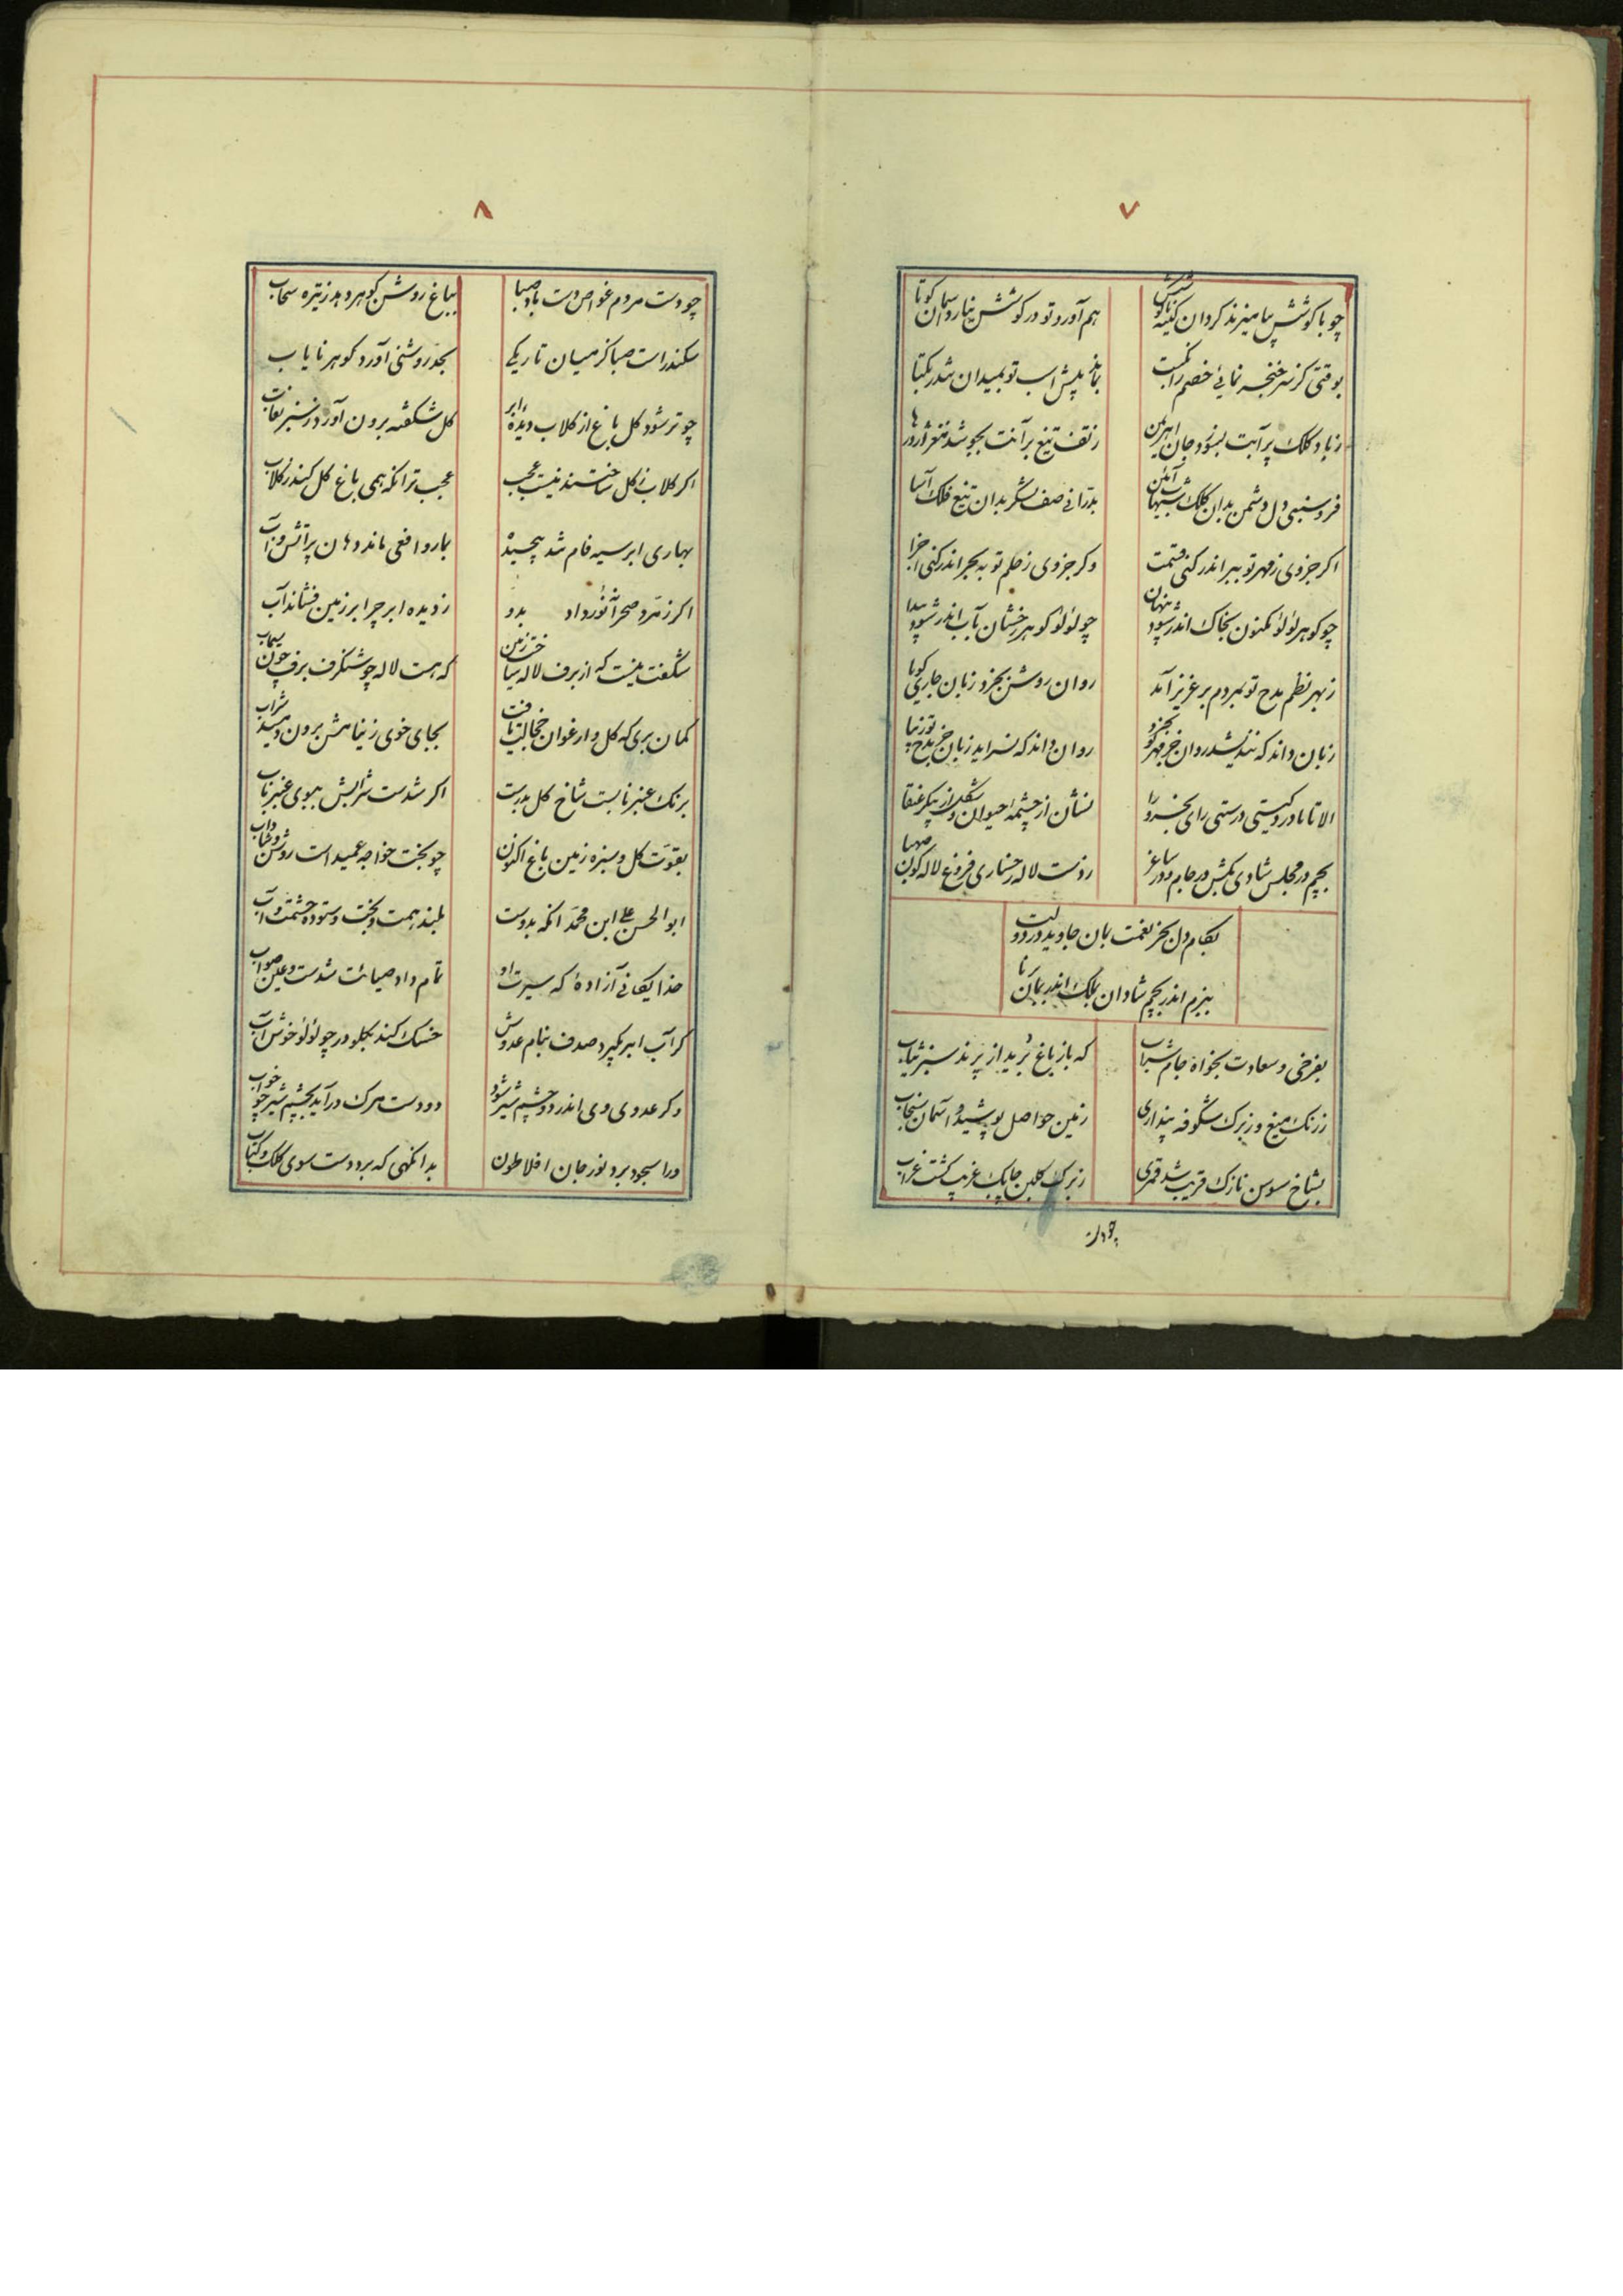 ۷
چو با کوشش بیامیزند کردان کینه
هم آورد تو در کوشش نیارد آسمان کوتا
بوقتی کز سر خنجر نمائی خصم را نکبت
بماند پیش اسب تو بمیدان شدر یکتا
زباد کلک پر آبت بسوزد جان اهریمن
ز تف تیغ بر آنت بجوشد مغز اژدرها
فرو سنبی دل دشمن بدان کلک شهاب آئین
بدرانی صف لشکر بدان تیغ فلک آسا
اکر جزوی ز قهر تو ببر اندر کنی قسمت
وکر جزوی ز حلم تو به بحر اندر کنی اجزا
چو کوهر لؤلؤ مکنون بخاک اندر شود پنهان
چو لؤلؤ کوهر رخشان بآب اندر شود پیدا
ز بهر نظم مدح تو بمردم بر عزیز آمد
روان روشن بخرد زبان جاری کویا
زبان داند که نندیشد روان جز مهر تو بخرد
روان داند که نسراید زبان جز مدح تو زیبا
الا تا مادر کیتی درستی رای بخرد را
نشان از چشمه حیوان و شکل از پیکر عنقا
بچم در مجلس شادی بکش در جام در ساغر
ز دست لاله رخساری فروغ لاله کون صهبا
بکام دل بخز نعمت بمان جاوید در دولت
ببزم اندر بچم شادان بملک اندر بمان تا
بفرخی و سعادت بخواه جام شراب
که باز باغ برید از پرند سبز ثیاب
ز رنک میغ و ز برک شکوفه پنداری
زمین حواصل پوشید و آسمان سنجاب
بشاخ سوسن نازک قریب شد قمری
ز برک کلبن چابک غریب کشت غراب
چودت
۸
چو دست مردم غواص دست باد صبا
بباغ روشن کوهر دهد ز تیره سحاب
سکندر است صبا کز میان تاریکی
بجد روشنی آورد کوهر نایاب
چو تر شود کل باغ از کلاب دیده ابر
کل شکفته برون آورد ز سبز نقاب
اکر کلاب ز کل ساختند نیست عجب
عجب تر انکه همی باغ کل کند ز کلاب
بهاری ابر سیه فام شد پیچیده
بمار و افعی ماند دهان پر آتش و آب
اکر زمرد صحرا نورداد بدو
ز دیده ابر چرا بر زمین فشاند آب
شکفت نیست که از برف لاله ساخت زمین
که هست لاله چو شنکرف برف چون سیماب
کمان بری که کل و ارغوان خجالت یافت
بجای خوی ز بناهش برون دمید شراب
برنک عنبر نابست شاخ کل بدرست
اکر شدست شرابش ببوی عنبر ناب
بقوت کل و سبزه زمین باغ اکنون
چو بخت خواجه عمید است روشن و شاداب
ابو الحسن علی ابن محمد انکه بدوست
بلند همت و بخت و ستوده حشمت و آب
خدایکانی آزاده که سیرت او
تمام داد صیانت شدست و عین صواب
کر آب ابر بکیرد صدف بنام عدوش
خسک کند بکلو در چو لؤلؤ خوش آب
وکر عدوی وی اندر دو چشم شیر شود
دو دست مرک در آید بچشم شیر چو خواب
ورا سجود برد نور جان افلاطون
بدانکهی که برد دست سوی کلک و کتاب